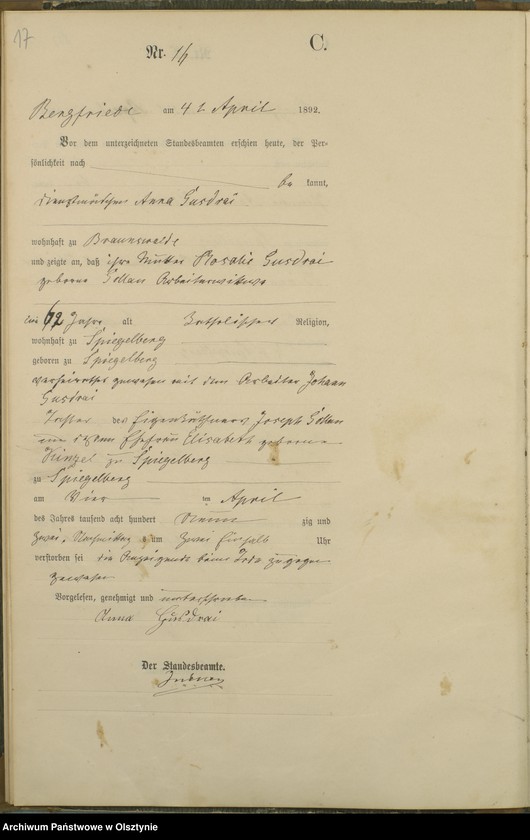 17
C.
Nr. 16
Bergfriede am 4 t April 1892.
Vor dem unterzeichneten Standesbeamten erschien heute, der Per-
sönlichkeit nach
be kannt,
Dienstmädchen Anna Gusdrai
wohnhaft zu Braunswalde
und zeigte an, daß ihre Mutter Rosalie Gusdrai
geborene Arbeiterwittwe
62 Jahre alt Katholischer Religion,
wohnhaft zu Spiegelberg
geboren zu Spiegelberg
verheirathet gewesen mit dem Arbeiter Johann
Gusdrai
Tochter des Eigenkäthners Joseph
Ehefrau Elisabeth geborene
zu Spiegelberg
zu Spiegelberg
am Vier ten April
des Jahres tausend acht hundert Neun zig und
zwei, Nachmittag um zwei einhalb Uhr
verstorben sei die Anzeigende beim Tode zugegen
gewesen
Vorgelesen, genehmigt und unterschrieben
Anna Gusdrai
Der Standesbeamte.
Archiwum Państwowe w Olsztynie